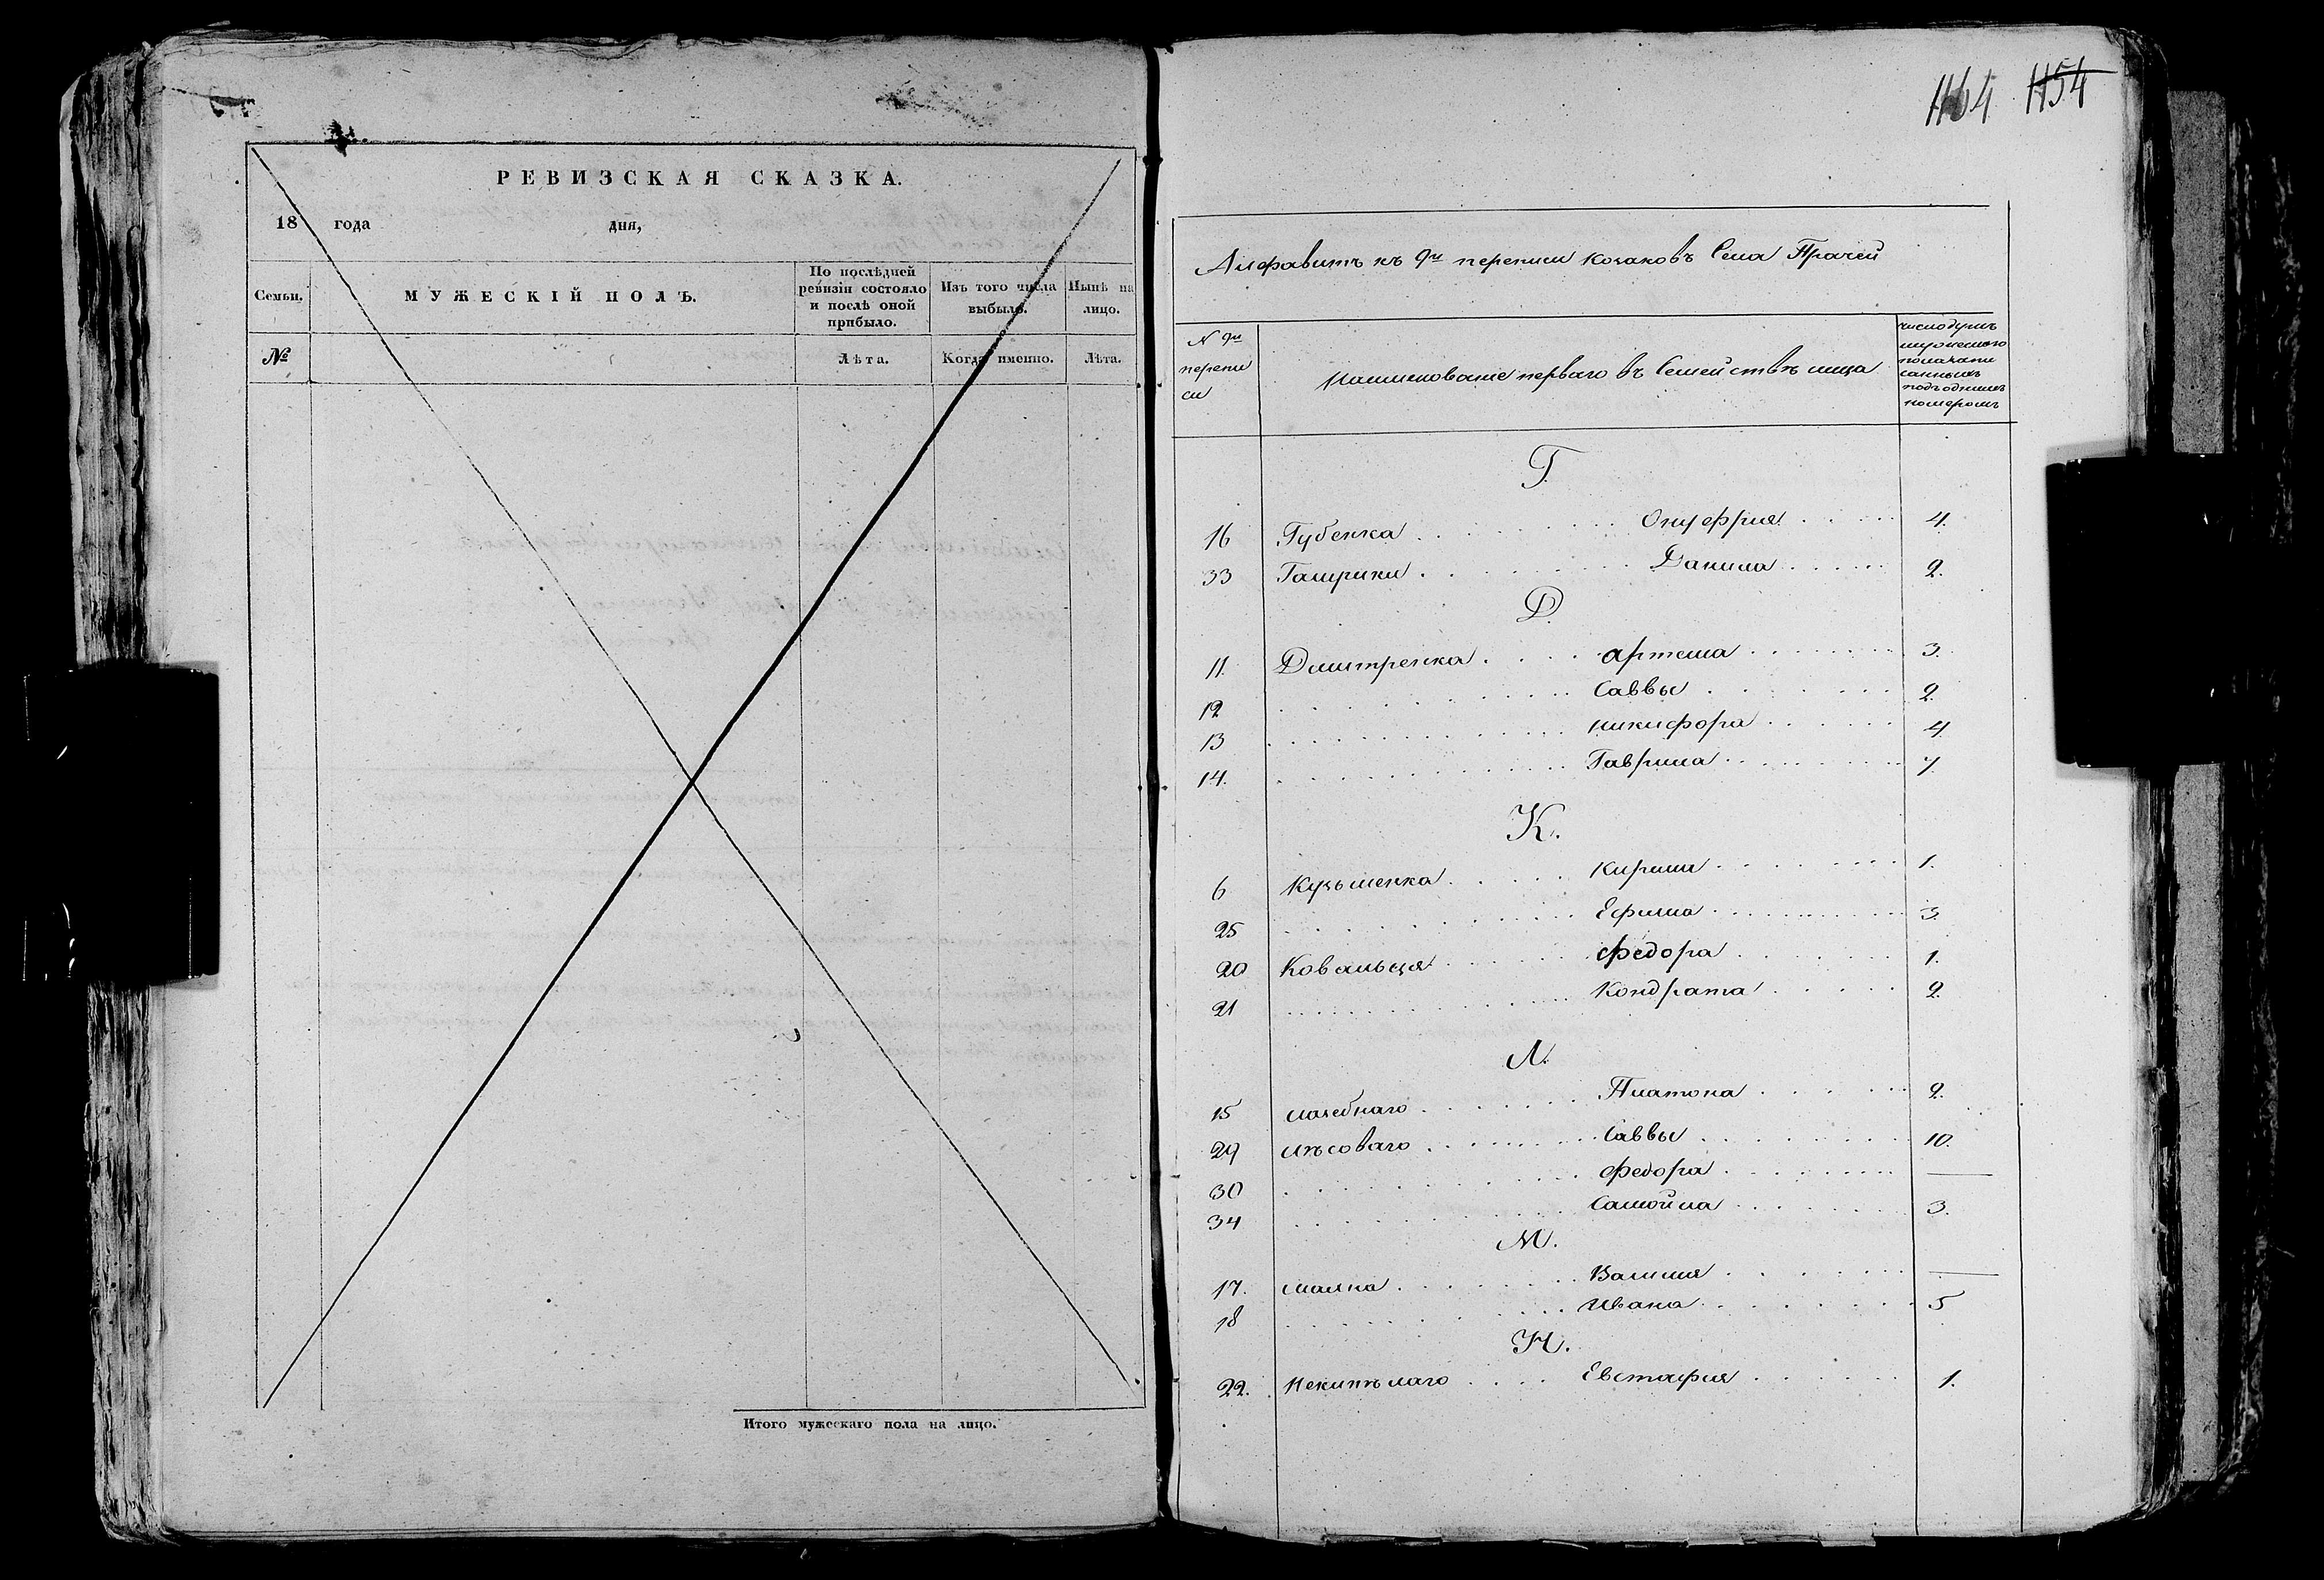 РЕВИЗСКАЯ СКАЗКА.
18 года дня,
Семьи. МУЖЕСКІЙ ПОЛЪ. По послѣдней ревизіи состояло и послѣ оной прибыло. Изъ того числа выбыло. Нынѣ на лицо.
№ Лѣта. Когда именно. Лѣта.
Итого мужескаго пола на лицо.
1164 1154
Алфавитъ къ 9й переписи козаковъ Села Прачей
N 9й
перепи
си
Наименованіе перваго въ Семействѣ лица
число душъ
мужескаго
пола запи
санныхъ
подъ однимъ
номеромъ
Г.
16 Губенка Онуфрия 4.
33 Гашрики Данила 2.
Д.
11. Дмитренка Артема 3.
12 Саввы 2.
13 Никифора 4
14. Гаврила 7.
К.
6 Кузьменка Кирила 1.
25 Ефима 3.
20 Ковальця Федора 1.
21 Кондрата 2.
Л.
15 Платона 2.
29 Лѣсоваго Саввы 10.
30 Федора —
34 Самойла 3.
М.
17. —
18 Ивана 5
Н.
22. Некипѣлаго Евстафия 1.